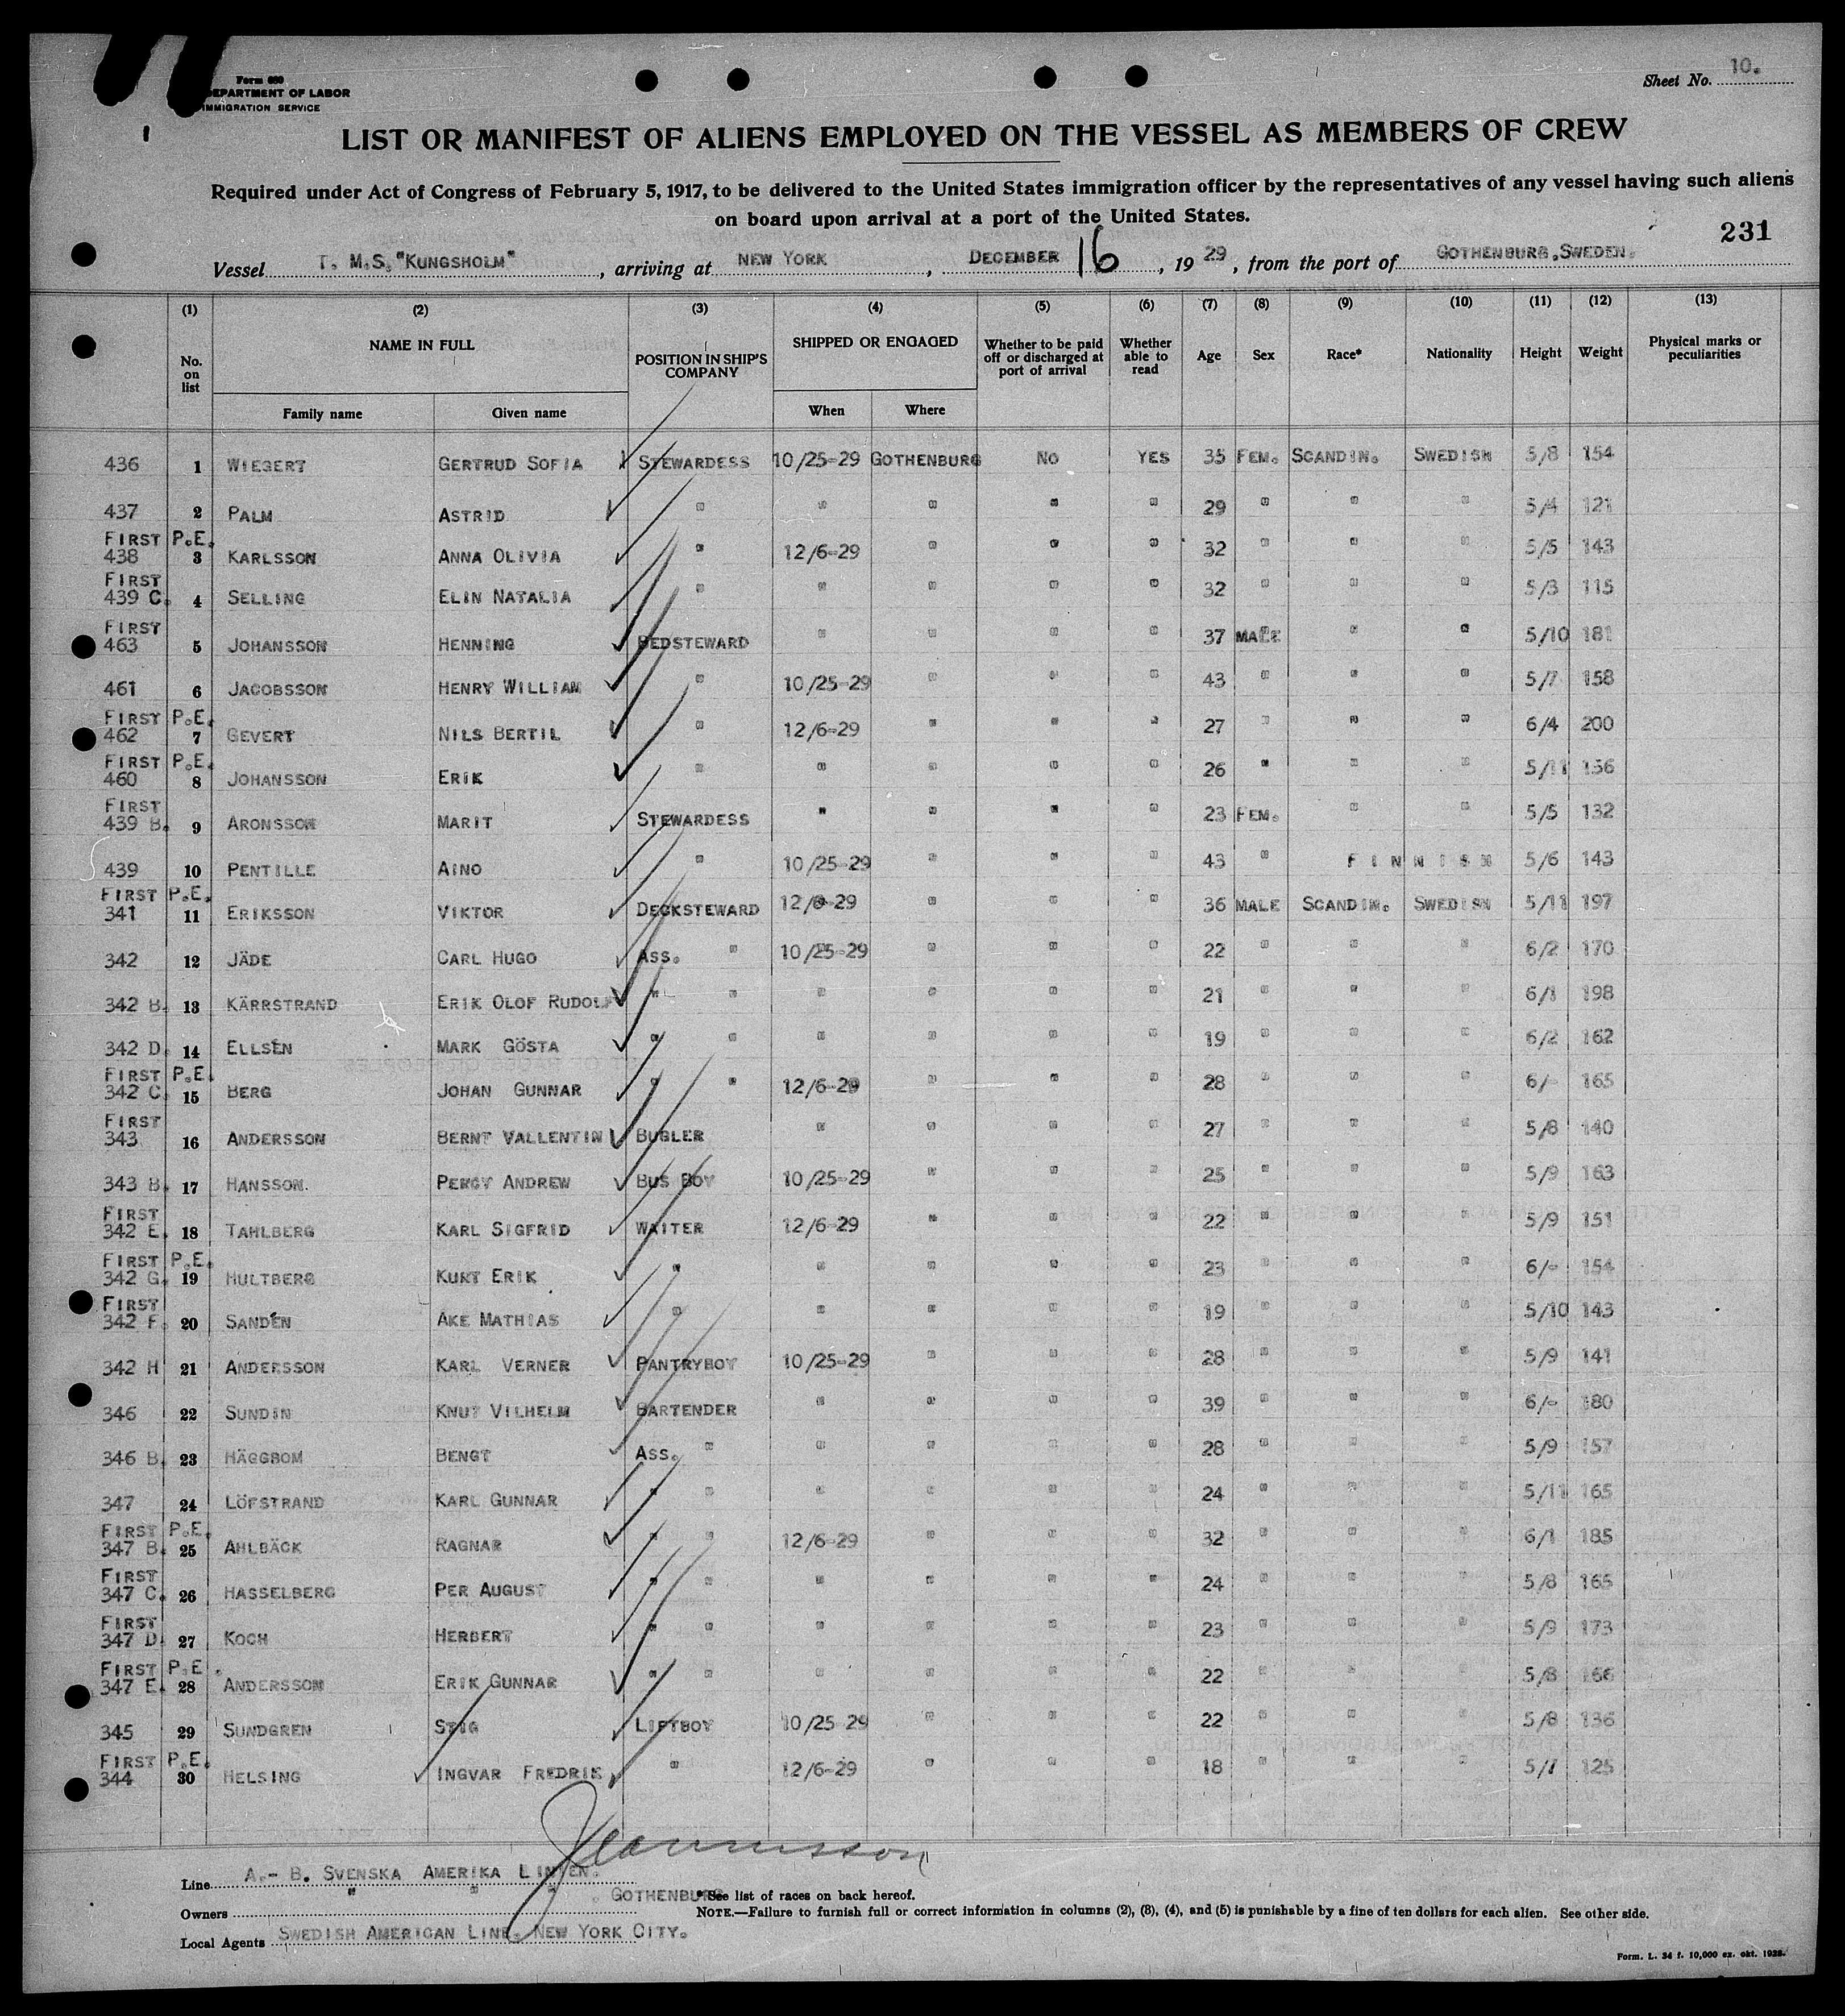 Form 680
DEPARTMENT OF LABOR
IMMIGRATION SERVICE
Sheet No. 10.
LIST OR MANIFEST OF ALIENS EMPLOYED ON THE VESSEL AS MEMBERS OF CREW
Required under Act of Congress of February 5, 1917, to be delivered to the United States immigration officer by the representatives of any vessel having such aliens
on board upon arrival at a port of the United States.
231
Vessel T. M.S. "KUNGSHOLM", arriving at NEW YORK, DECEMBER 16, 1929, from the port of GOTHENBURG, SWEDEN.
(1) (2) (3) (4) (5) (6) (7) (8) (9) (10) (11) (12) (13)
No. on list NAME IN FULL POSITION IN SHIP'S COMPANY SHIPPED OR ENGAGED Whether to be paid off or discharged at port of arrival Whether able to read Age Sex Race* Nationality Height Weight Physical marks or peculiarities
Family name Given name When Where
436 1 WIEGERT GERTRUD SOFIA STEWARDESS 10/25-29 GOTHENBURG NO YES 35 FEM. SCANDIN. SWEDISH 5/8 154
437 2 PALM ASTRID " " " " " 29 " " " 5/4 121
FIRST P.E.
438 3 KARLSSON ANNA OLIVIA " 12/6-29 " " " 32 " " " 5/5 143
FIRST
439 C. 4 SELLING ELIN NATALIA " " " " " 32 " " " 5/3 115
FIRST
463 5 JOHANSSON HENNING BEDSTEWARD " " " " 37 MALE " " 5/10 181
461 6 JACOBSSON HENRY WILLIAM " 10/25-29 " " " 43 " " " 5/7 158
FIRST P.E.
462 7 GEVERT NILS BERTIL " 12/6-29 " " " 27 " " " 6/4 200
FIRST P.E.
460 8 JOHANSSON ERIK " " " " " 26 " " " 5/11 156
FIRST
439 B. 9 ARONSSON MARIT STEWARDESS " " " " 23 FEM. " " 5/5 132
439 10 PENTILLE AINO " 10/25-29 " " " 43 " FINNISH 5/6 143
FIRST P.E.
341 11 ERIKSSON VIKTOR DECKSTEWARD 12/6-29 " " " 36 MALE SCANDIN. SWEDISH 5/11 197
342 12 JÄDE CARL HUGO ASS. " 10/25-29 " " " 22 " " " 6/2 170
342 B. 13 KÄRRSTRAND ERIK OLOF RUDOLF " " " " " " 21 " " " 6/1 198
342 D. 14 ELLSÉN MARK GÖSTA " " " " " " 19 " " " 6/2 162
FIRST P.E.
342 C. 15 BERG JOHAN GUNNAR " " 12/6-29 " " " 28 " " " 6/- 165
FIRST
343 16 ANDERSSON BERNT VALLENTIN BUGLER " " " " 27 " " " 5/8 140
343 B. 17 HANSSON. PERCY ANDREW BUS BOY 10/25-29 " " " 25 " " " 5/9 163
FIRST
342 E. 18 TAHLBERG KARL SIGFRID WAITER 12/6-29 " " " 22 " " " 5/9 151
FIRST P.E.
342 G. 19 HULTBERG KURT ERIK " " " " " 23 " " " 6/- 154
FIRST
342 F. 20 SANDÉN AKE MATHIAS " " " " " 19 " " " 5/10 143
342 H 21 ANDERSSON KARL VERNER PANTRYBOY 10/25-29 " " " 28 " " " 5/9 141
346 22 SUNDIN KNUT VILHELM BARTENDER " " " " 39 " " " 6/- 180
346 B. 23 HÄGGBOM BENGT ASS. " " " " " 28 " " " 5/9 157
347 24 LÖFSTRAND KARL GUNNAR " " " " " " 24 " " " 5/11 165
FIRST P.E.
347 B. 25 AHLBÄCK RAGNAR " " 12/6-29 " " " 32 " " " 6/1 185
FIRST
347 C. 26 HASSELBERG PER AUGUST " " " " " " 24 " " " 5/8 165
FIRST
347 D. 27 KOCH HERBERT " " " " " " 23 " " " 5/9 173
FIRST P.E.
347 E. 28 ANDERSSON ERIK GUNNAR " " " " " " 22 " " " 5/8 166
345 29 SUNDGREN STIG LIFTBOY 10/25 29 " " " 22 " " " 5/8 136
FIRST P.E.
344 30 HELSING INGVAR FREDRIK " 12/6-29 " " " 18 " " " 5/7 125
Line A.- B. SVENSKA AMERIKA LINIEN.
Owners " " " . GOTHENBURG
Local Agents SWEDISH AMERICAN LINE. NEW YORK CITY.
* See list of races on back hereof.
NOTE.—Failure to furnish full or correct information in columns (2), (3), (4), and (5) is punishable by a fine of ten dollars for each alien. See other side.
Form. L. 34 f. 10,000 ex. okt. 1928.